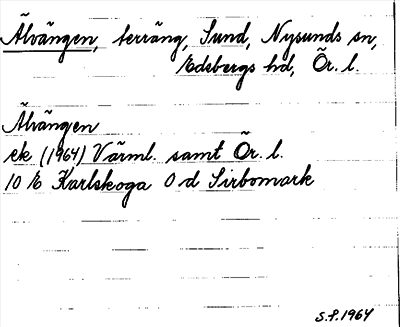 Älvängen, terräng, Sund, Nysunds sn,
Edsbergs hd, Ör. l.
Älvängen
ek (1964) Värml. samt Ör. l.
10 E Karlskoga 0 d Sirbomark
S.F. 1964